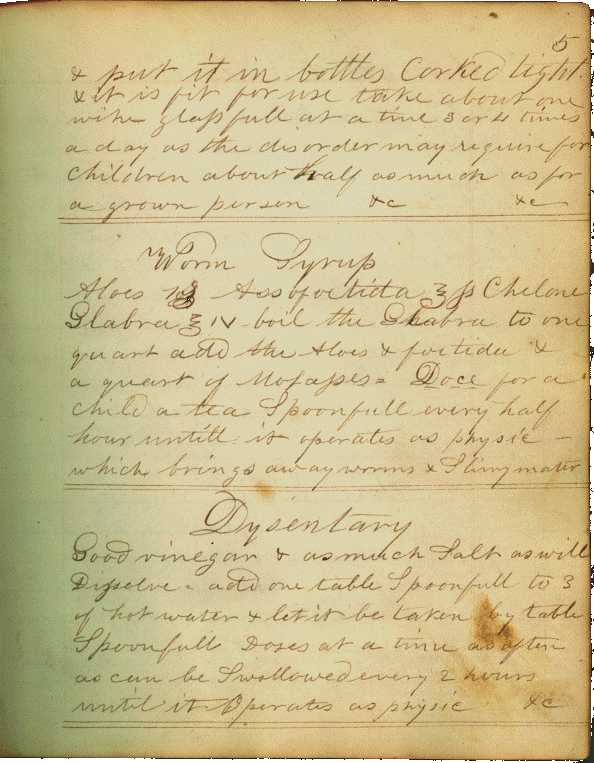 5
& put it in bottles Corked tight.
& it is fit for use take about one
wine glass full at a time 3 or 4 times
a day as the disorder may require for
Children about half as much as for
a grown person &c &c
Worm Syrup
Aloes Assofoetida ʒ β Chelone
Glabra ℥ IV boil the Glabra to one
quart add the Aloes & foetida &
a quart of Molasses = Doce for a
Child a tea Spoonfull every half
hour untill it operates as physic –
which brings away worms & Slimy mater
Dysentary
Good vinegar & as much Salt as will
Dissolve - add one table Spoonfull to 3
of hot water & let it be taken by table
Spoonfull Doses at a time as often
as can be Swallowed every 2 hours
until it Operates as physic &c